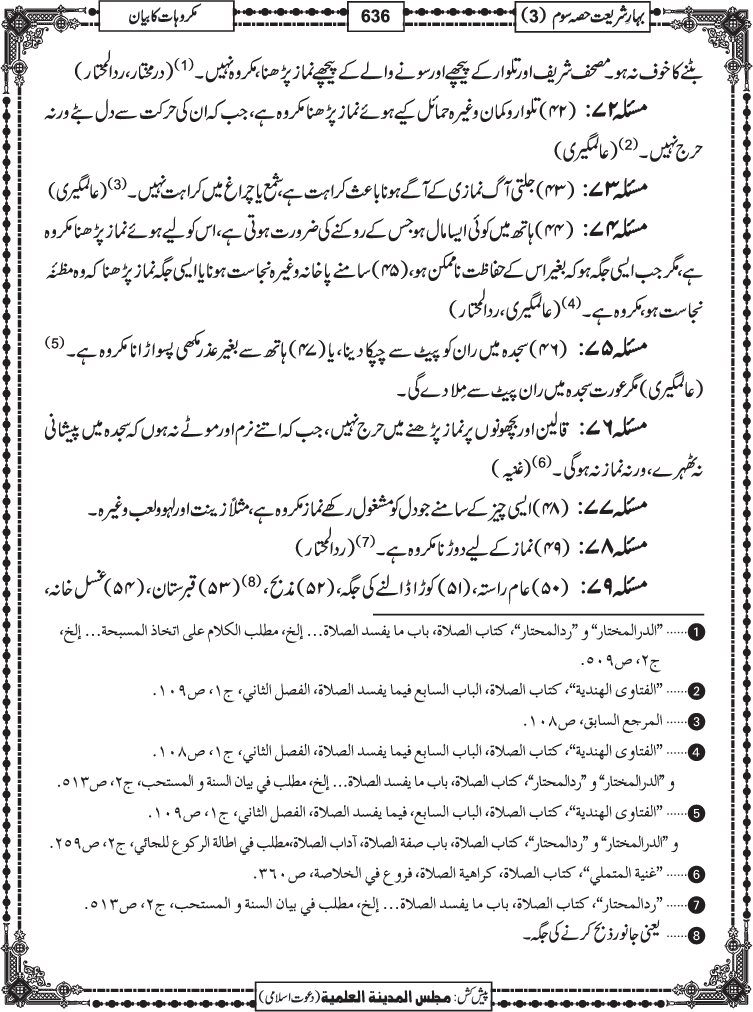 بہارِ شریعت حصہ سوم (3)
636
مکروہات کا بیان
بٹنے کا خوف نہ ہو۔ مصحف شریف اور تلوار کے پیچھے اور سونے والے کے پیچھے نماز پڑھنا، مکروہ نہیں۔(1) (درمختار، ردالمحتار)
مسئلہ ۷۲: (۴۲) تلوار و کمان وغیرہ حمائل کیے ہوئے نماز پڑھنا مکروہ ہے، جب کہ ان کی حرکت سے دل بٹے ورنہ
حرج نہیں۔(2) (عالمگیری)
مسئلہ ۷۳: (۴۳) جلتی آگ نمازی کے آگے ہونا باعث کراہت ہے، شمع یا چراغ میں کراہت نہیں۔(3) (عالمگیری)
مسئلہ ۷۴: (۴۴) ہاتھ میں کوئی ایسا مال ہو جس کے روکنے کی ضرورت ہوتی ہے، اس کو لیے ہوئے نماز پڑھنا مکروہ
ہے، مگر جب ایسی جگہ ہو کہ بغیر اس کے حفاظت ناممکن ہو، (۴۵) سامنے پاخانہ وغیرہ نجاست ہونا یا ایسی جگہ نماز پڑھنا کہ وہ مظنّہ
نجاست ہو، مکروہ ہے۔(4) (عالمگیری، ردالمحتار)
مسئلہ ۷۵: (۴۶) سجدہ میں ران کو پیٹ سے چپکا دینا، یا (۴۷) ہاتھ سے بغیر عذر مکھی پسو اڑانا مکروہ ہے۔(5)
(عالمگیری) مگر عورت سجدہ میں ران پیٹ سے مِلا دے گی۔
مسئلہ ۷۶: قالین اور بچھونوں پر نماز پڑھنے میں حرج نہیں، جب کہ اتنے نرم اور موٹے نہ ہوں کہ سجدہ میں پیشانی
نہ ٹھہرے، ورنہ نماز نہ ہوگی۔(6) (غنیہ)
مسئلہ ۷۷: (۴۸) ایسی چیز کے سامنے جو دل کو مشغول رکھے نماز مکروہ ہے، مثلاً زینت اور لہو و لعب وغیرہ۔
مسئلہ ۷۸: (۴۹) نماز کے لیے دوڑنا مکروہ ہے۔(7) (ردالمحتار)
مسئلہ ۷۹: (۵۰) عام راستہ، (۵۱) کوڑا ڈالنے کی جگہ، (۵۲) مذبح،(8) (۵۳) قبرستان، (۵۴) غسل خانہ،
1 ...... ”الدرالمختار“ و ”ردالمحتار“، كتاب الصلاة، باب ما يفسد الصلاة... إلخ، مطلب الكلام على اتخاذ المسبحة... إلخ،
ج٢، ص٥٠٩.
2 ...... ”الفتاوى الهندية“، كتاب الصلاة، الباب السابع فيما يفسد الصلاة، الفصل الثاني، ج١، ص١٠٩.
3 ...... المرجع السابق، ص١٠٨.
4 ...... ”الفتاوى الهندية“، كتاب الصلاة، الباب السابع فيما يفسد الصلاة، الفصل الثاني، ج١، ص١٠٨.
و ”الدرالمختار“ و ”ردالمحتار“، كتاب الصلاة، باب ما يفسد الصلاة... إلخ، مطلب في بيان السنة و المستحب، ج٢، ص٥١٣.
5 ...... ”الفتاوى الهندية“، كتاب الصلاة، الباب السابع، فيما يفسد الصلاة، الفصل الثاني، ج١، ص١٠٩.
و ”الدرالمختار“ و ”ردالمحتار“، كتاب الصلاة، باب صفة الصلاة، آداب الصلاة،مطلب في اطالة الركوع للجائي، ج٢، ص٢٥٩.
6 ...... ”غنية المتملي“، كتاب الصلاة، كراهية الصلاة، فروع في الخلاصة، ص٣٦٠.
7 ...... ”ردالمحتار“، كتاب الصلاة، باب ما يفسد الصلاة... إلخ، مطلب في بيان السنة و المستحب، ج٢، ص٥١٣.
8 ...... یعنی جانور ذبح کرنے کی جگہ۔
پیش کش: مجلس المدينة العلمية (دعوتِ اسلامی)